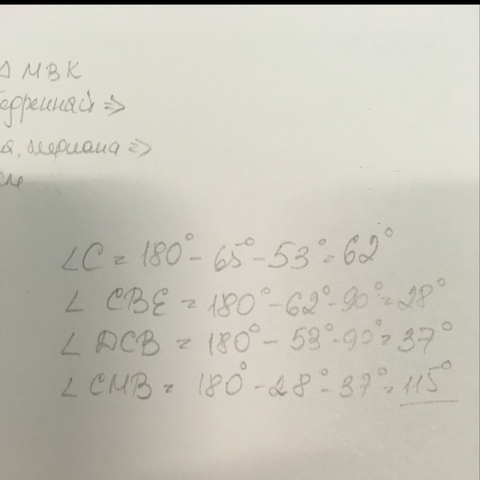 Δ MBK
бедренной =>
ия, медиана =>
см
∠C = 180° - 65° - 53° = 62°
∠ CBE = 180° - 62° - 90° = 28°
∠ DCB = 180° - 53° - 90° = 37°
∠ CMB = 180° - 28° - 37° = 115°